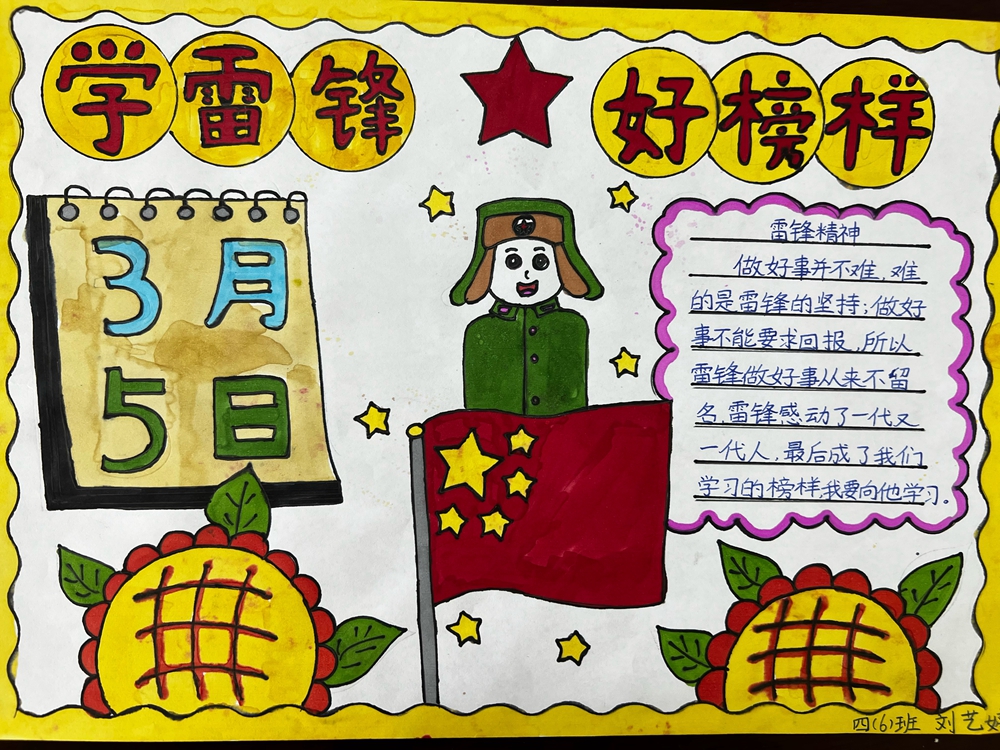 学雷锋
好榜样
3月
5日
雷锋精神
做好事并不难,难
的是雷锋的坚持;做好
事不能要求回报,所以
雷锋做好事从来不留
名,雷锋感动了一代又
一代人,最后成了我们
学习的榜样,我要向他学习。
四(6)班 刘艺